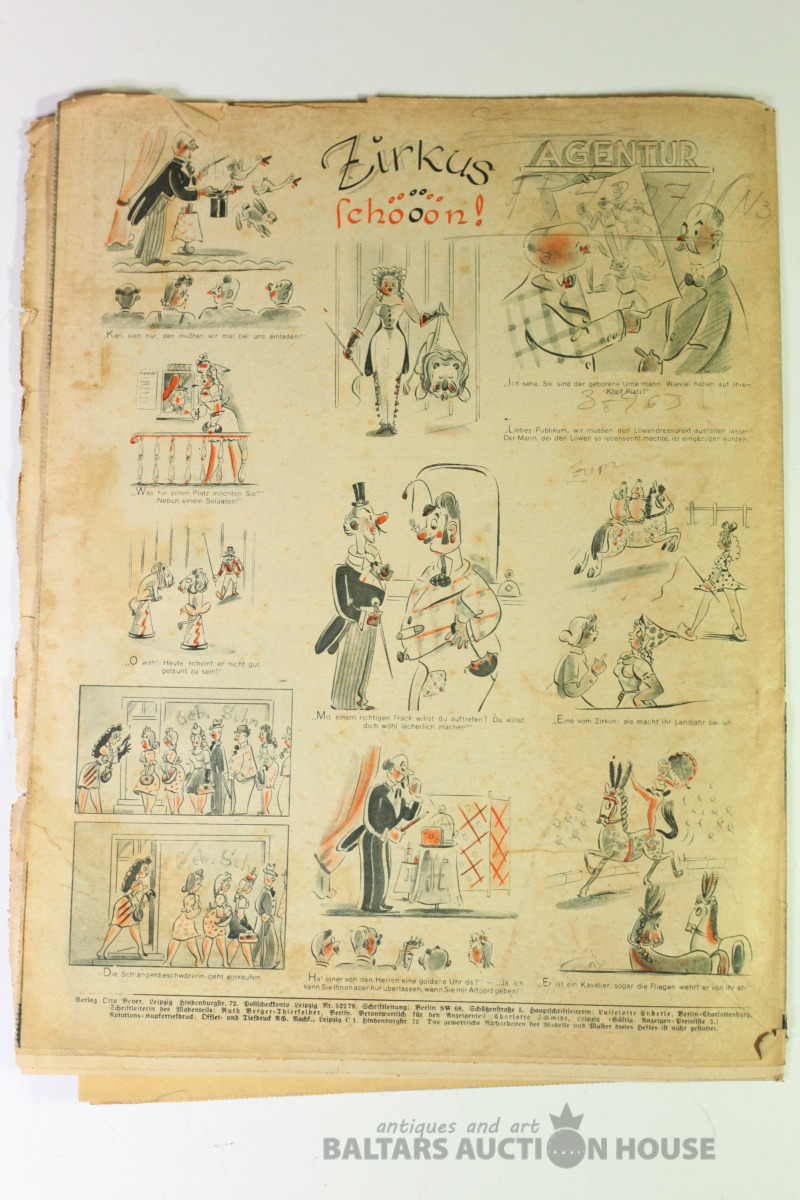 Zirkus
schööön!
AGENTUR
"Karl, sieh nur, den müßten wir mal bei uns einladen!"
„Ich sehe, Sie sind der geborene Untermann. Wieviel haben auf Ihrem
Kopf Platz?"
„Liebes Publikum, wir müssen den Löwendressurakt ausfallen lassen!
Der Mann, der den Löwen so lebensecht machte, ist eingezogen worden."
„Was für einen Platz möchten Sie?"
„Neben einem Soldaten!"
„O weh! Heute scheint er nicht gut
gelaunt zu sein!"
„Mit einem richtigen Frack willst du auftreten? Du willst
dich wohl lächerlich machen!"
„Eine vom Zirkus; sie macht ihr Landjahr bei un
Geb. Schn
Geb. Schn
Die Schlangenbeschwörerin geht einkaufen.
„Hat einer von den Herren eine goldene Uhr da?" — „Ja, ich
kann Sie Ihnen aber nur überlassen, wenn Sie mir Altgold geben!"
„Er ist ein Kavalier, sogar die Fliegen wehrt er von ihr ab!"
Verlag Otto Beyer, Leipzig, Hindenburgstr. 72. Postscheckkonto Leipzig Nr. 52279. Schriftleitung: Berlin SW 68, Schützenstraße 5. Hauptschriftleiterin: Luiselotte Enderle, Berlin-Charlottenburg.
Schriftleiterin des Modenteils: Ruth Berger-Thierfelder, Berlin. Verantwortlich für den Anzeigenteil Charlotte Schmidt, Leipzig (Gültig Anzeigen-Preisliste 5.)
Rotations-Kupfertiefdruck: Offset- und Tiefdruck AG. Nachf., Leipzig C 1, Hindenburgstr. 72. Das gewerbliche Nacharbeiten der Modelle und Muster dieses Heftes ist nicht gestattet.
antiques and art
BALTARS AUCTION HOUSE